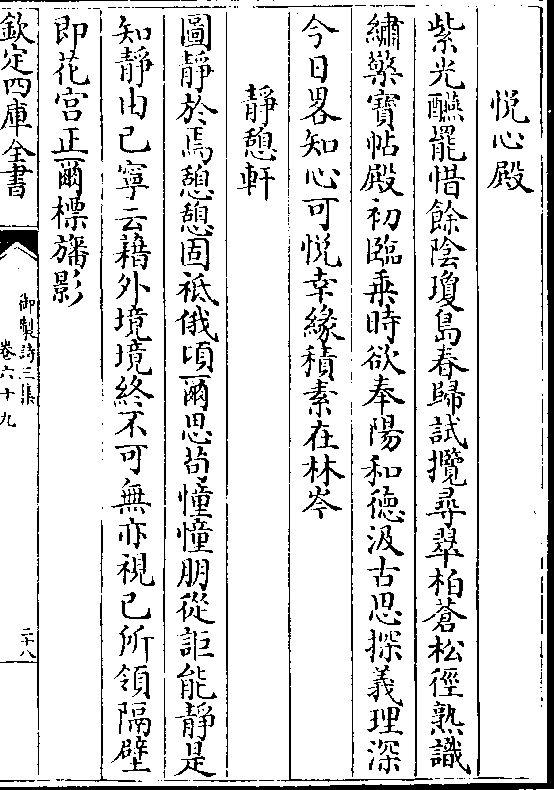 悅心殿
紫光醼罷惜餘陰瓊島春歸試攬尋翠柏蒼松徑熟識
繡櫐寶帖殿初臨乗時欲奉陽和德汲古思探義理深
今日畧知心可悅幸緣積素在林岑
靜憩軒
圖靜於焉憩憩固祗俄頃爾思茍憧憧朋從詎能靜是
知靜由己寧云藉外境境終不可無亦視己所領隔壁
即花宫正爾標旛影
欽定四庫全書
御製詩三集
卷六十九
二十八